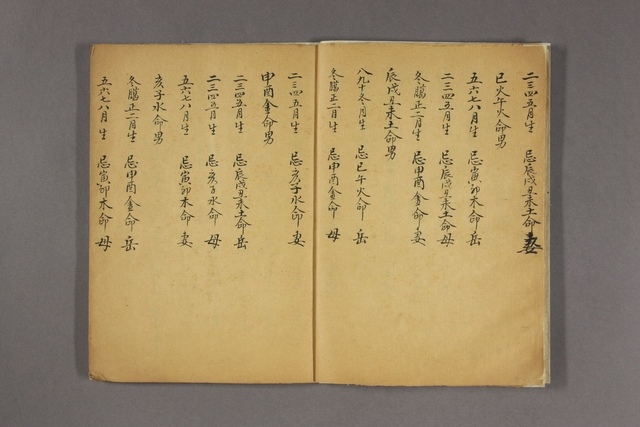 二三四五月生　忌辰戌丑未土命妻
巳火午火命男
五六七八月生　忌寅卯木命岳
二三四五月生　忌辰戌丑未土命母
冬臘正二月生　忌申酉金命妻
辰戌丑未土命男
八九十冬月生　忌巳午火命岳
冬臘正二月生　忌申酉金命母
二三四五月生　忌亥子水命妻
申酉金命男
二三四五月生　忌辰戌丑未土命岳
二三四五月生　忌亥子水命母
五六七八月生　忌寅卯木命妻
亥子水命男
冬臘正二月生　忌申酉金命岳
五六七八月生　忌寅卯木命母